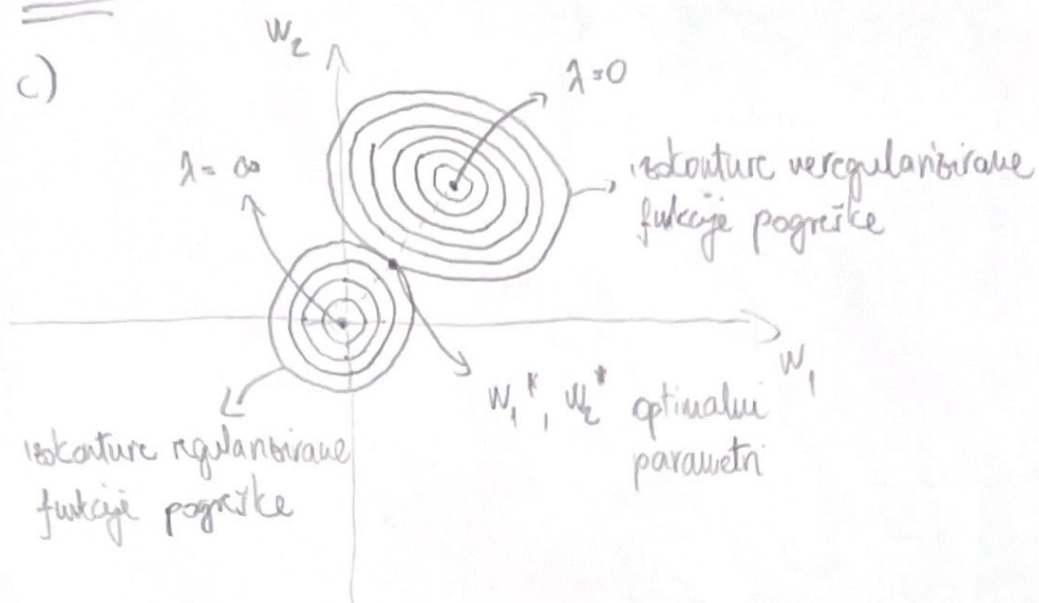 c)
w₂
λ=0
λ=∞
izokonture neregularizirane
funkcije pogreške
w₁
w₁*, w₂* optimalni
parametri
izokonture regularizirane
funkcije pogreške